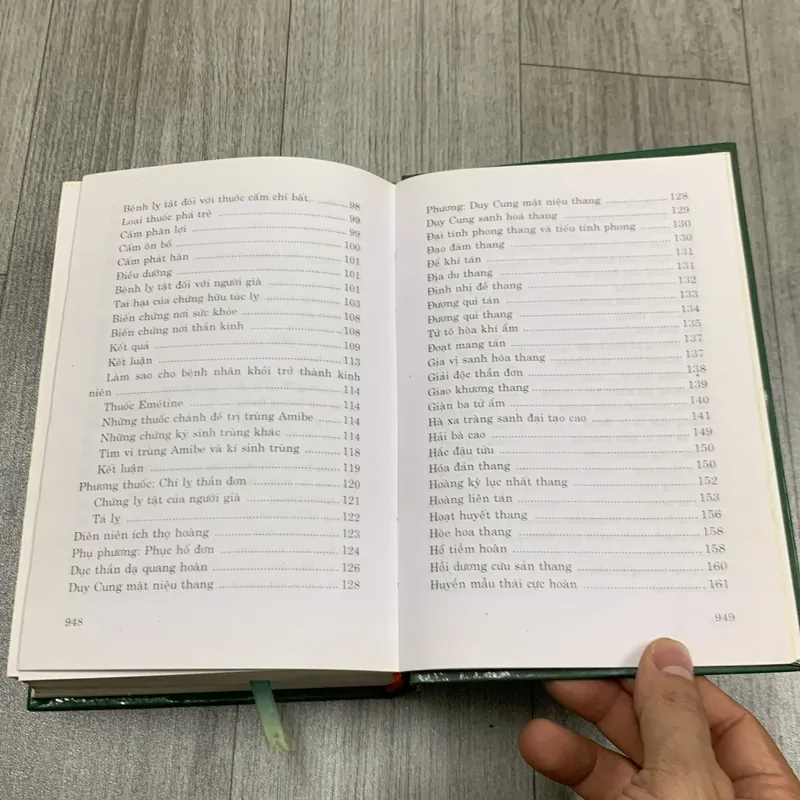 Bệnh lỵ tật đối với thuốc cấm chỉ bất.. 98
Loại thuốc phá trệ ........ 99
Cấm phân lợi ........ 99
Cấm ôn bổ ........ 100
Cấm phát hãn ........ 101
Điều dưỡng ........ 101
Bệnh lỵ tật đối với người già ........ 101
Tai hại của chứng hữu túc lỵ ........ 103
Biến chứng nơi sức khỏe ........ 108
Biến chứng nơi thần kinh ........ 108
Kết quả ........ 109
Kết luận ........ 113
Làm sao cho bệnh nhân khỏi trở thành kinh
niên ........ 114
Thuốc Emétine ........ 114
Những thuốc chánh để trị trùng Amibe ........ 114
Những chứng ký sinh trùng khác ........ 114
Tìm vi trùng Amibe và kí sinh trùng ........ 118
Kết luận ........ 119
Phương thuốc: Chỉ lỵ thần đơn ........ 120
Chứng lỵ tật của người già ........ 121
Tả lỵ ........ 122
Diên niên ích thọ hoàng ........ 123
Phụ phương: Phục hổ đơn ........ 124
Dục thần dạ quang hoàn ........ 126
Duy Cung mật niệu thang ........ 128
948
Phương: Duy Cung mật niệu thang ........ 128
Duy Cung sanh hoá thang ........ 129
Đại tính phong thang và tiểu tính phong ........ 130
Đạo đàm thang ........ 130
Đề khí tán ........ 131
Địa du thang ........ 131
Đinh nhị đề thang ........ 132
Đương qui tán ........ 133
Đương qui thang ........ 134
Tử tô hòa khí ẩm ........ 135
Đoạt mang tán ........ 137
Gia vị sanh hóa thang ........ 137
Giải độc thần đơn ........ 138
Giao khương thang ........ 139
Giản ba tử ẩm ........ 140
Hà xa tràng sanh đại tạo cao ........ 141
Hải bà cao ........ 149
Hắc đậu tửu ........ 150
Hóa đản thang ........ 150
Hoàng kỳ lục nhất thang ........ 152
Hoàng liên tán ........ 153
Hoạt huyết thang ........ 156
Hòe hoa thang ........ 158
Hổ tiềm hoàn ........ 158
Hồi dương cứu sản thang ........ 160
Huyền mẫu thái cực hoàn ........ 161
949